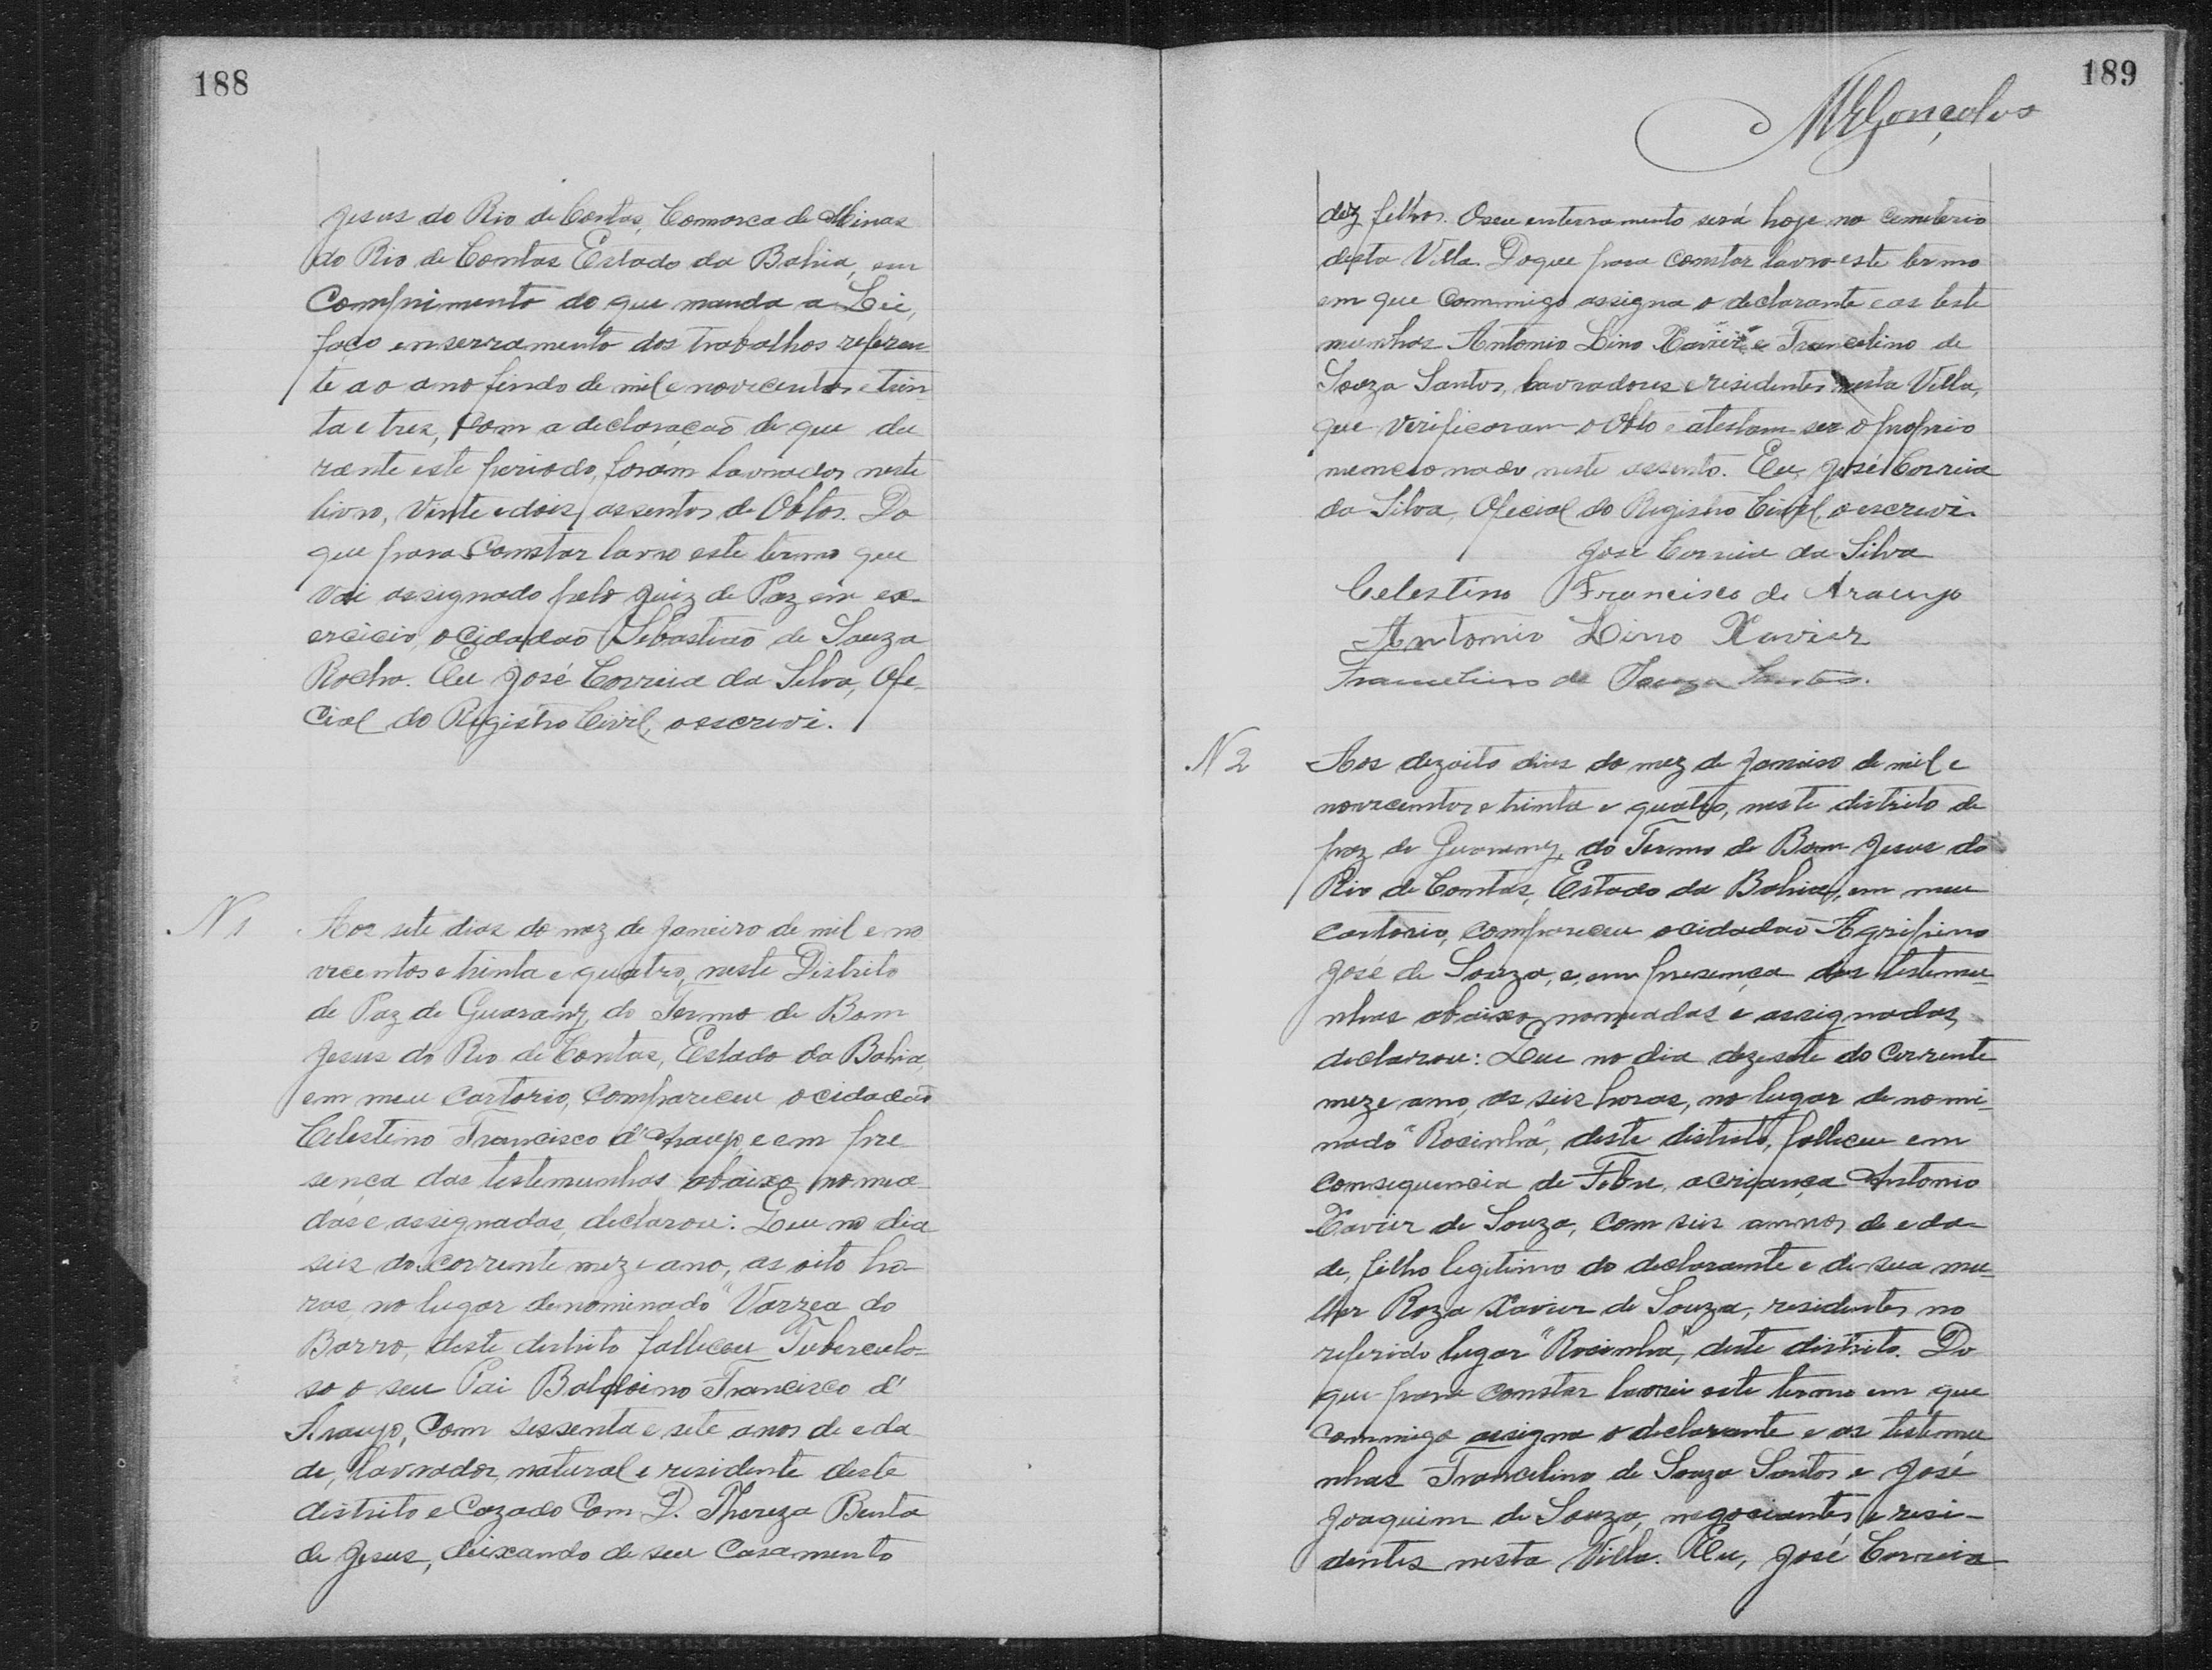 188
Jesus do Rio de Contas, Comarca de Minas
do Rio de Contas Estado da Bahia, em
Comprimento do que manda a Lei,
faço enserramento dos trabalhos referen
te ao ano findo de mil e novecentos e trin
ta e tres, com a declaração de que du
rante este periodo, foram lavrados neste
livro, vinte e dois, assentos de Obtos. Do
que para constar lavro este termo que
vai assignado pelo Juiz de Paz em ex-
ercicio, o cidadão Sebastião de Souza
Rocha. Eu José Correia da Silva, Ofe-
cial do Registro Civil, o escrevi.
N 1
Aos sete dias do mez de Janeiro de mil e no
vecentos e trinta e quatro, neste Distrito
de Paz de Guarany, do Termo de Bom
Jesus do Rio de Contas, Estado da Bahia,
em meu cartorio, compareceu o cidadão
Celestino Francisco d'Araujo, e em pre-
sença das testemunhas abaixo nomea-
das e assignadas, declarou: Que no dia
seis do corrente mez e ano, as oito ho-
ras, no lugar denominado "Varzea do
Barro, deste distrito falleceu Tuberculo-
so o seu Pai Baldoino Francisco d'
Araujo, com sessenta e sete anos de eda-
de, lavrador, natural e residente deste
distrito e Cazado com D. Thereza Benta
de Jesus, deixando de seu Casamento
189
MRGonçalves
dez filhos. O seu enterramento será hoje no cemiterio
desta Villa. Do que para constar lavro este termo
em que commigo assigna o declarante e as teste
munhas Antonio Lino Xavier e Francelino de
Souza Santos, lavradores e residentes nesta Villa,
que verificaram o Obto e atestam ser o proprio
mencionado neste assento. Eu, José Correia
da Silva, Oficial do Registro Civil, o escrevi.
José Correia da Silva
Celestino Francisco de Araujo
Antonio Lino Xavier
Francelino de Souza Santos.
N 2
Aos dezoito dias do mez de Janeiro de mil e
novecentos e trinta e quatro, neste distrito de
paz de Guarany, do Termo de Bom Jesus do
Rio de Contas, Estado da Bahia, em meu
cartorio, compareceu o cidadão Agripino
José de Souza, e, em presença das testemu-
nhas abaixo nomeadas e assignadas,
declarou: Que no dia dezesete do corrente
mez e ano, as seis horas, no lugar denomi-
nado "Rosinha", deste distrito, falleceu em
consequencia de Febre, a criança Antonio
Xavier de Souza, com seis annos de eda-
de, filho legitimo do declarante e de sua mu-
lher Roza Xavier de Souza, residentes no
referido lugar "Rosinha", deste distrito. Do
que para constar lavrei este termo em que
commigo assigna o declarante e as testemu
nhas Francelino de Souza Santos e José
Joaquim de Souza, negociantes e resi-
dentes nesta Villa. Eu, José Correia